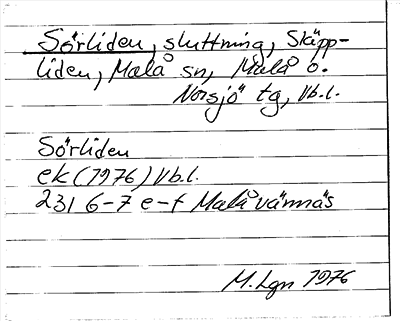 Sörliden, sluttning, Skäpp-
liden, Malå sn, Malå o.
Norsjö tg, Vb.l.
Sörliden
ek (1976) Vb.l.
231 6-7 e-f Malåvännäs
M. Lgn 1976